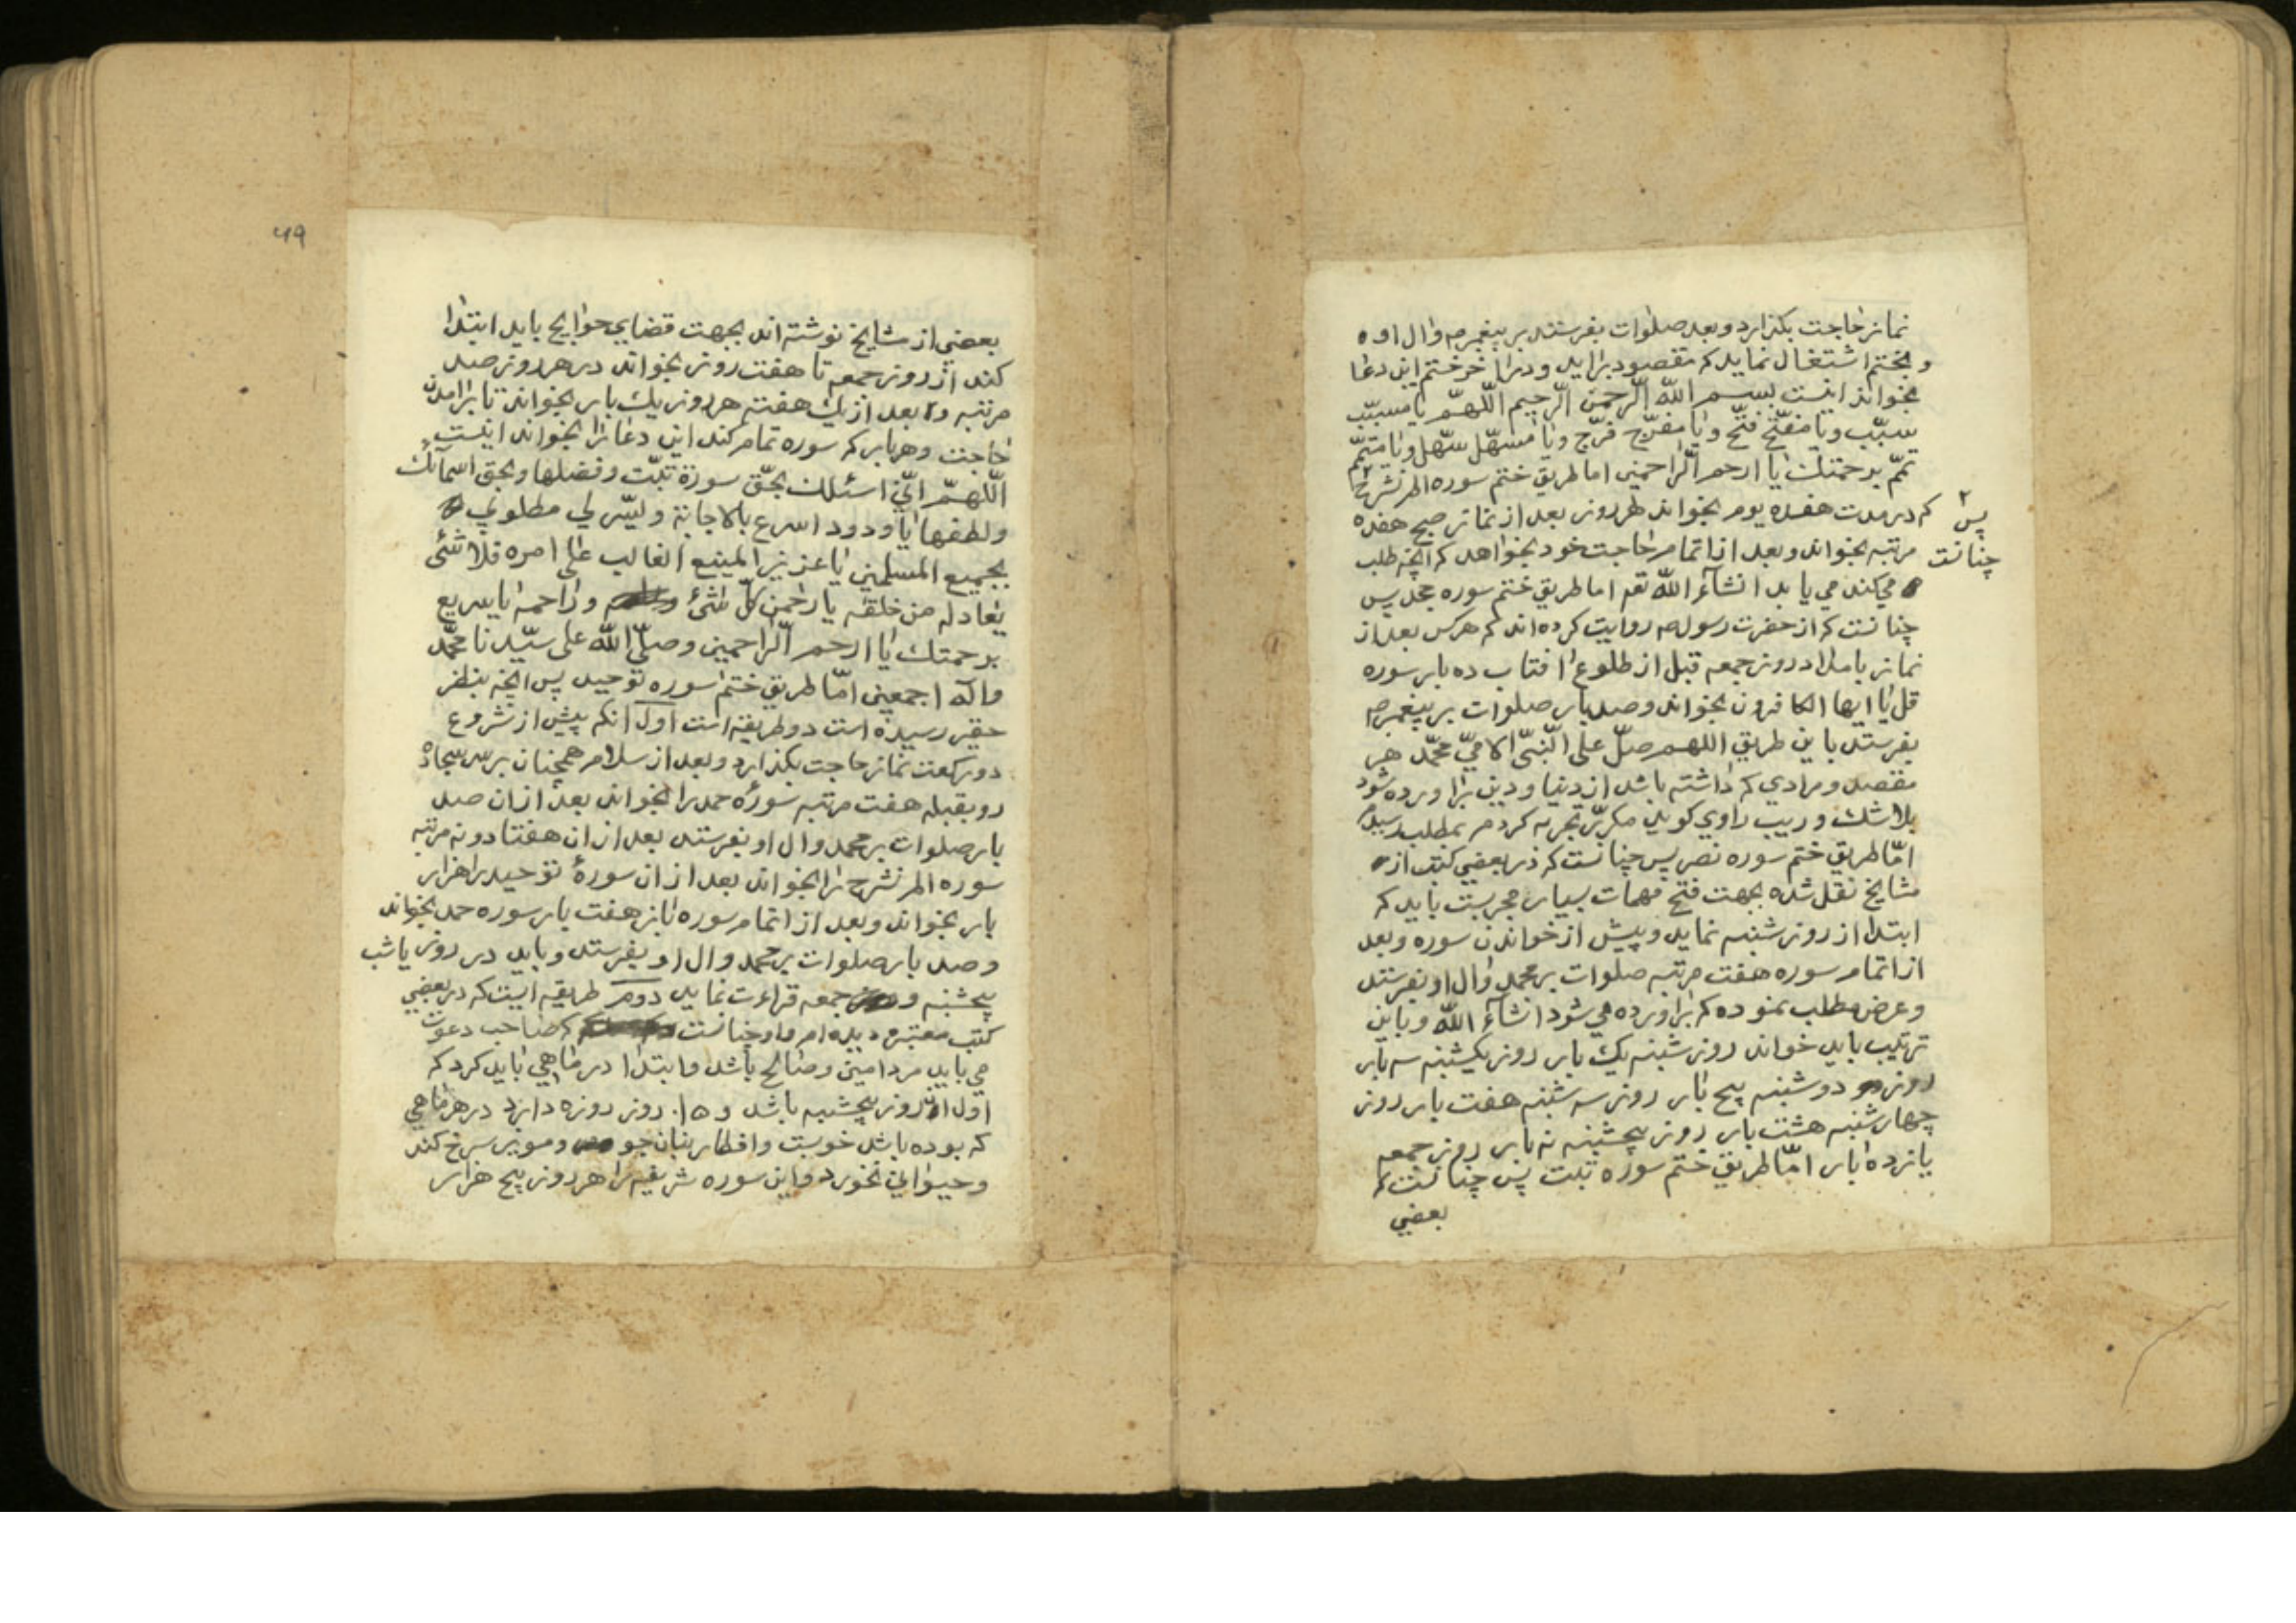 نماز حاجت بکذارد و بعد صلوات بفرستد بر پیغمبر صه وال او ه
و بختم اشتغال نماید که مقصود براید و در اخر ختم این دعا
بخواند اینست بسم الله الرحمن الرحیم اللهمّ یا مسبّب
سبّب ویا مفتّح فتّح ویا مفرّج فرّج ویا مسهّل سهّل ویا متمّم
تمّم برحمتك یا ارحم الراحمین اما طریق ختم سوره الم نشرح
پس چنانست
که در مدت هفده یوم بخواند هر روز بعد از نماز صبح هفده
مرتبه بخواند و بعد از اتمام حاجت خود بخواهد که انچه طلب
می کند می یابد انشآء الله تعه اما طریق ختم سوره جحد پس
چنانست که از حضرت رسول صه روایت کرده اند که هر کس بعد از
نماز بامداد روز جمعه قبل از طلوع افتاب ده بار سوره
قل یا ایها الکافرون بخواند و صد بار صلوات بر پیغمبر صه
بفرستد باین طریق اللهم صلّ علی النّبیّ الامّیّ محمّد هر
مقصد و مرادی که داشته باشد از دنیا و دین براورده شود
بلا شك و ریب راوی کوید مکرّر تجربه کردم بمطلب رسیدم
امّا طریق ختم سوره نصر پس چنانست که در بعضی کتب از
مشایخ نقل شده بجهت فتح مهمات بسیار مجربست باید که
ابتدا از روز شنبه نماید و پیش از خواندن سوره و بعد
از اتمام سوره هفت مرتبه صلوات بر محمد وال او بفرستد
و عرض مطلب نموده که براورده می شود انشآء الله و باین
ترتیب باید خواند روز شنبه یك بار روز یکشنبه سه بار
روز دوشنبه پنج بار روز سه شنبه هفت بار روز
چهارشنبه هشت بار روز پنجشنبه نه بار روز جمعه
یانزده بار امّا طریق ختم سوره تبّت پس چنانست که
بعضی
۴۹
بعضی از مشایخ نوشته اند بجهت قضایی حوایج باید ابتدا
کند از روز جمعه تا هفت روز بخواند در هر روز صد
مرتبه و بعد از یك هفته هر روز یك بار بخواند تا برامدن
حاجت و هر بار که سوره تمام کند این دعا را بخواند اینست
اللّهمّ انّی اسئلك بحقّ سورة تبّت و فضلها و بحق اسمآئك
ولطفها یا ودود اسرع بالاجابة ولیسّر لی مطلوبی
بجمیع المسلمین یا عزیز المنیع الغالب علی امره فلا شئ
یعادله من خلقه یا رحمن کلّ شئ و راحمه یا سریع
برحمتك یا ارحم الرّاحمین وصلّی الله علی سیّدنا محمّد
واله اجمعین امّا طریق ختم سوره توحید پس انچه بنظر
حقیر رسیده است دو طریقه است اول انکه پیش از شروع
دو رکعت نماز حاجت بکذارد و بعد از سلام همچنان بر سر سجاده
رو بقبله هفت مرتبه سوره حمد را بخواند بعد از ان صد
بار صلوات بر محمد وال او بفرستد بعد از ان هفتاد و نه مرتبه
سوره الم نشرح را بخواند بعد از ان سورهٔ توحید را هزار
بار بخواند و بعد از اتمام سوره باز هفت بار سوره حمد بخواند
و صد بار صلوات بر محمد وال او بفرستد و باید در روز یا شب
پنجشنبه و جمعه قراءت نماید دوم طریقه ایست که در بعضی
کتب معتبره دیده ام و او چنانست که صاحب دعوت
می باید مرد امین و صالح باشد و ابتدا در ماهی باید کرد که
اول ان روز پنجشنبه باشد و ۱۵ روز روزه دارد در هر ماهی
که بوده باشد خوبست و افطار بنان جو و مویز سرخ کند
و حیوانی نخورد و این سوره شریفه را هر روز پنج هزار